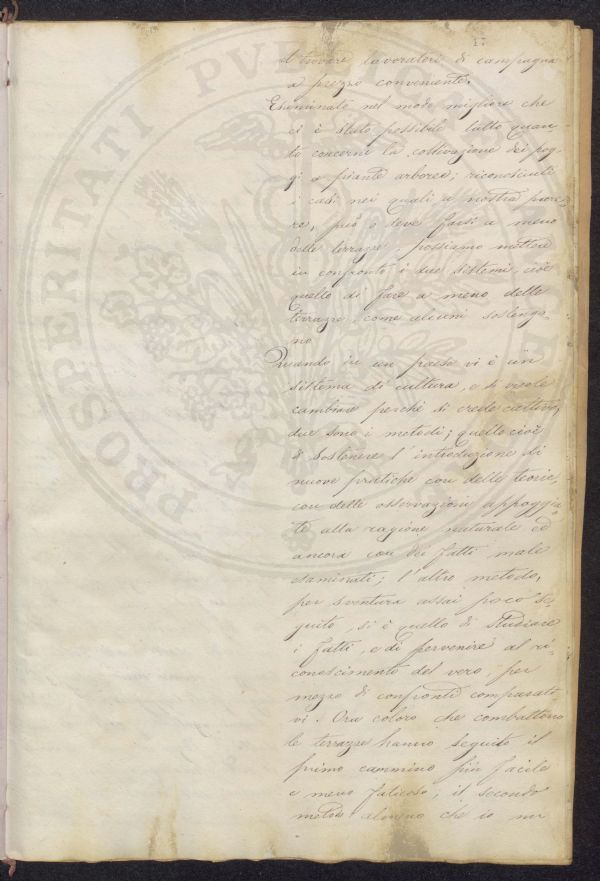 17
di trovare lavoratori di campagna
a prezzo conveniente.
Esaminato nel modo migliore che
ci è stato possibile tutto quan-
to concerne la coltivazione dei pog-
gi a piante arboree; riconosciuti
i casi nei quali a nostro pare-
re, può o deve farsi a meno
delle terrazze, possiamo mettere
in confronto i due sistemi, cioè
quello di fare a meno delle
terrazze come alcuni sostengo-
no
Quando in un paese vi è un
sistema di cultura, e si vuole
cambiare perchè si crede cattivo,
due sono i metodi; quello cioè
di sostenere l'introduzione di
nuove pratiche con delle teorie,
con delle osservazioni appoggia-
te alla ragione naturale ed
ancora con dei fatti male
esaminati; l'altro metodo,
per sventura assai poco se-
guito, si è quello di studiare
i fatti, e di pervenire al ri-
conoscimento del vero, per
mezzo di confronti comparati-
vi. Ora coloro che combattono
le terrazze hanno seguito il
primo cammino più facile
e meno faticoso, il secondo
metodo almeno che io mi
PROSPERITATI PUBLICAE